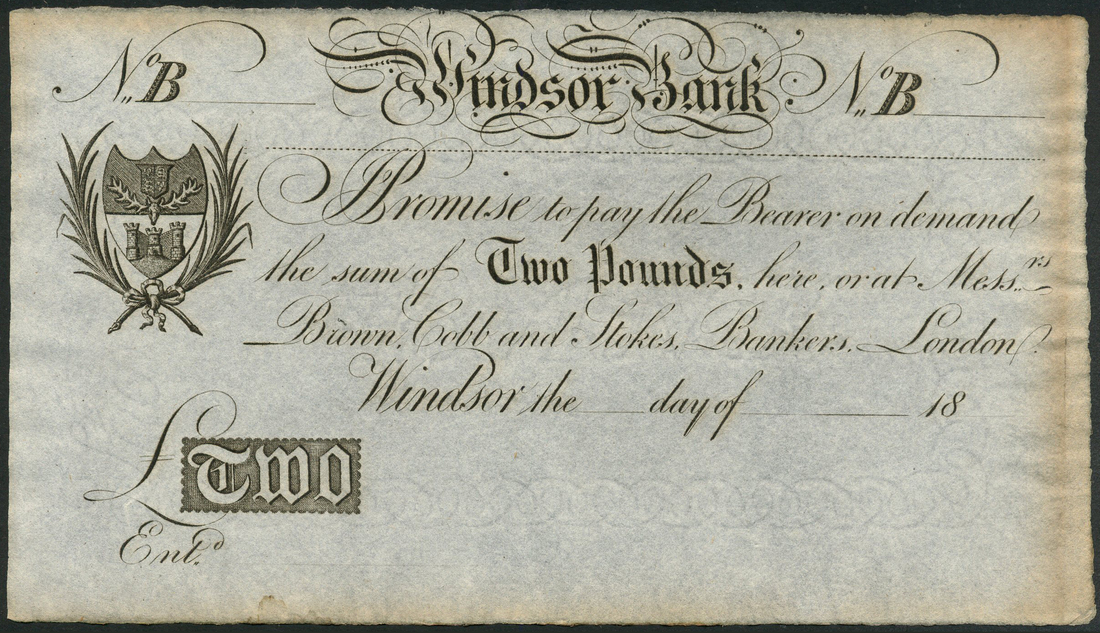 No B Windsor Bank No B
I Promise to pay the Bearer on demand
the sum of Two Pounds, here, or at Messrs
Brown, Cobb and Stokes, Bankers, London.
Windsor the day of 18
£ Two
Entd